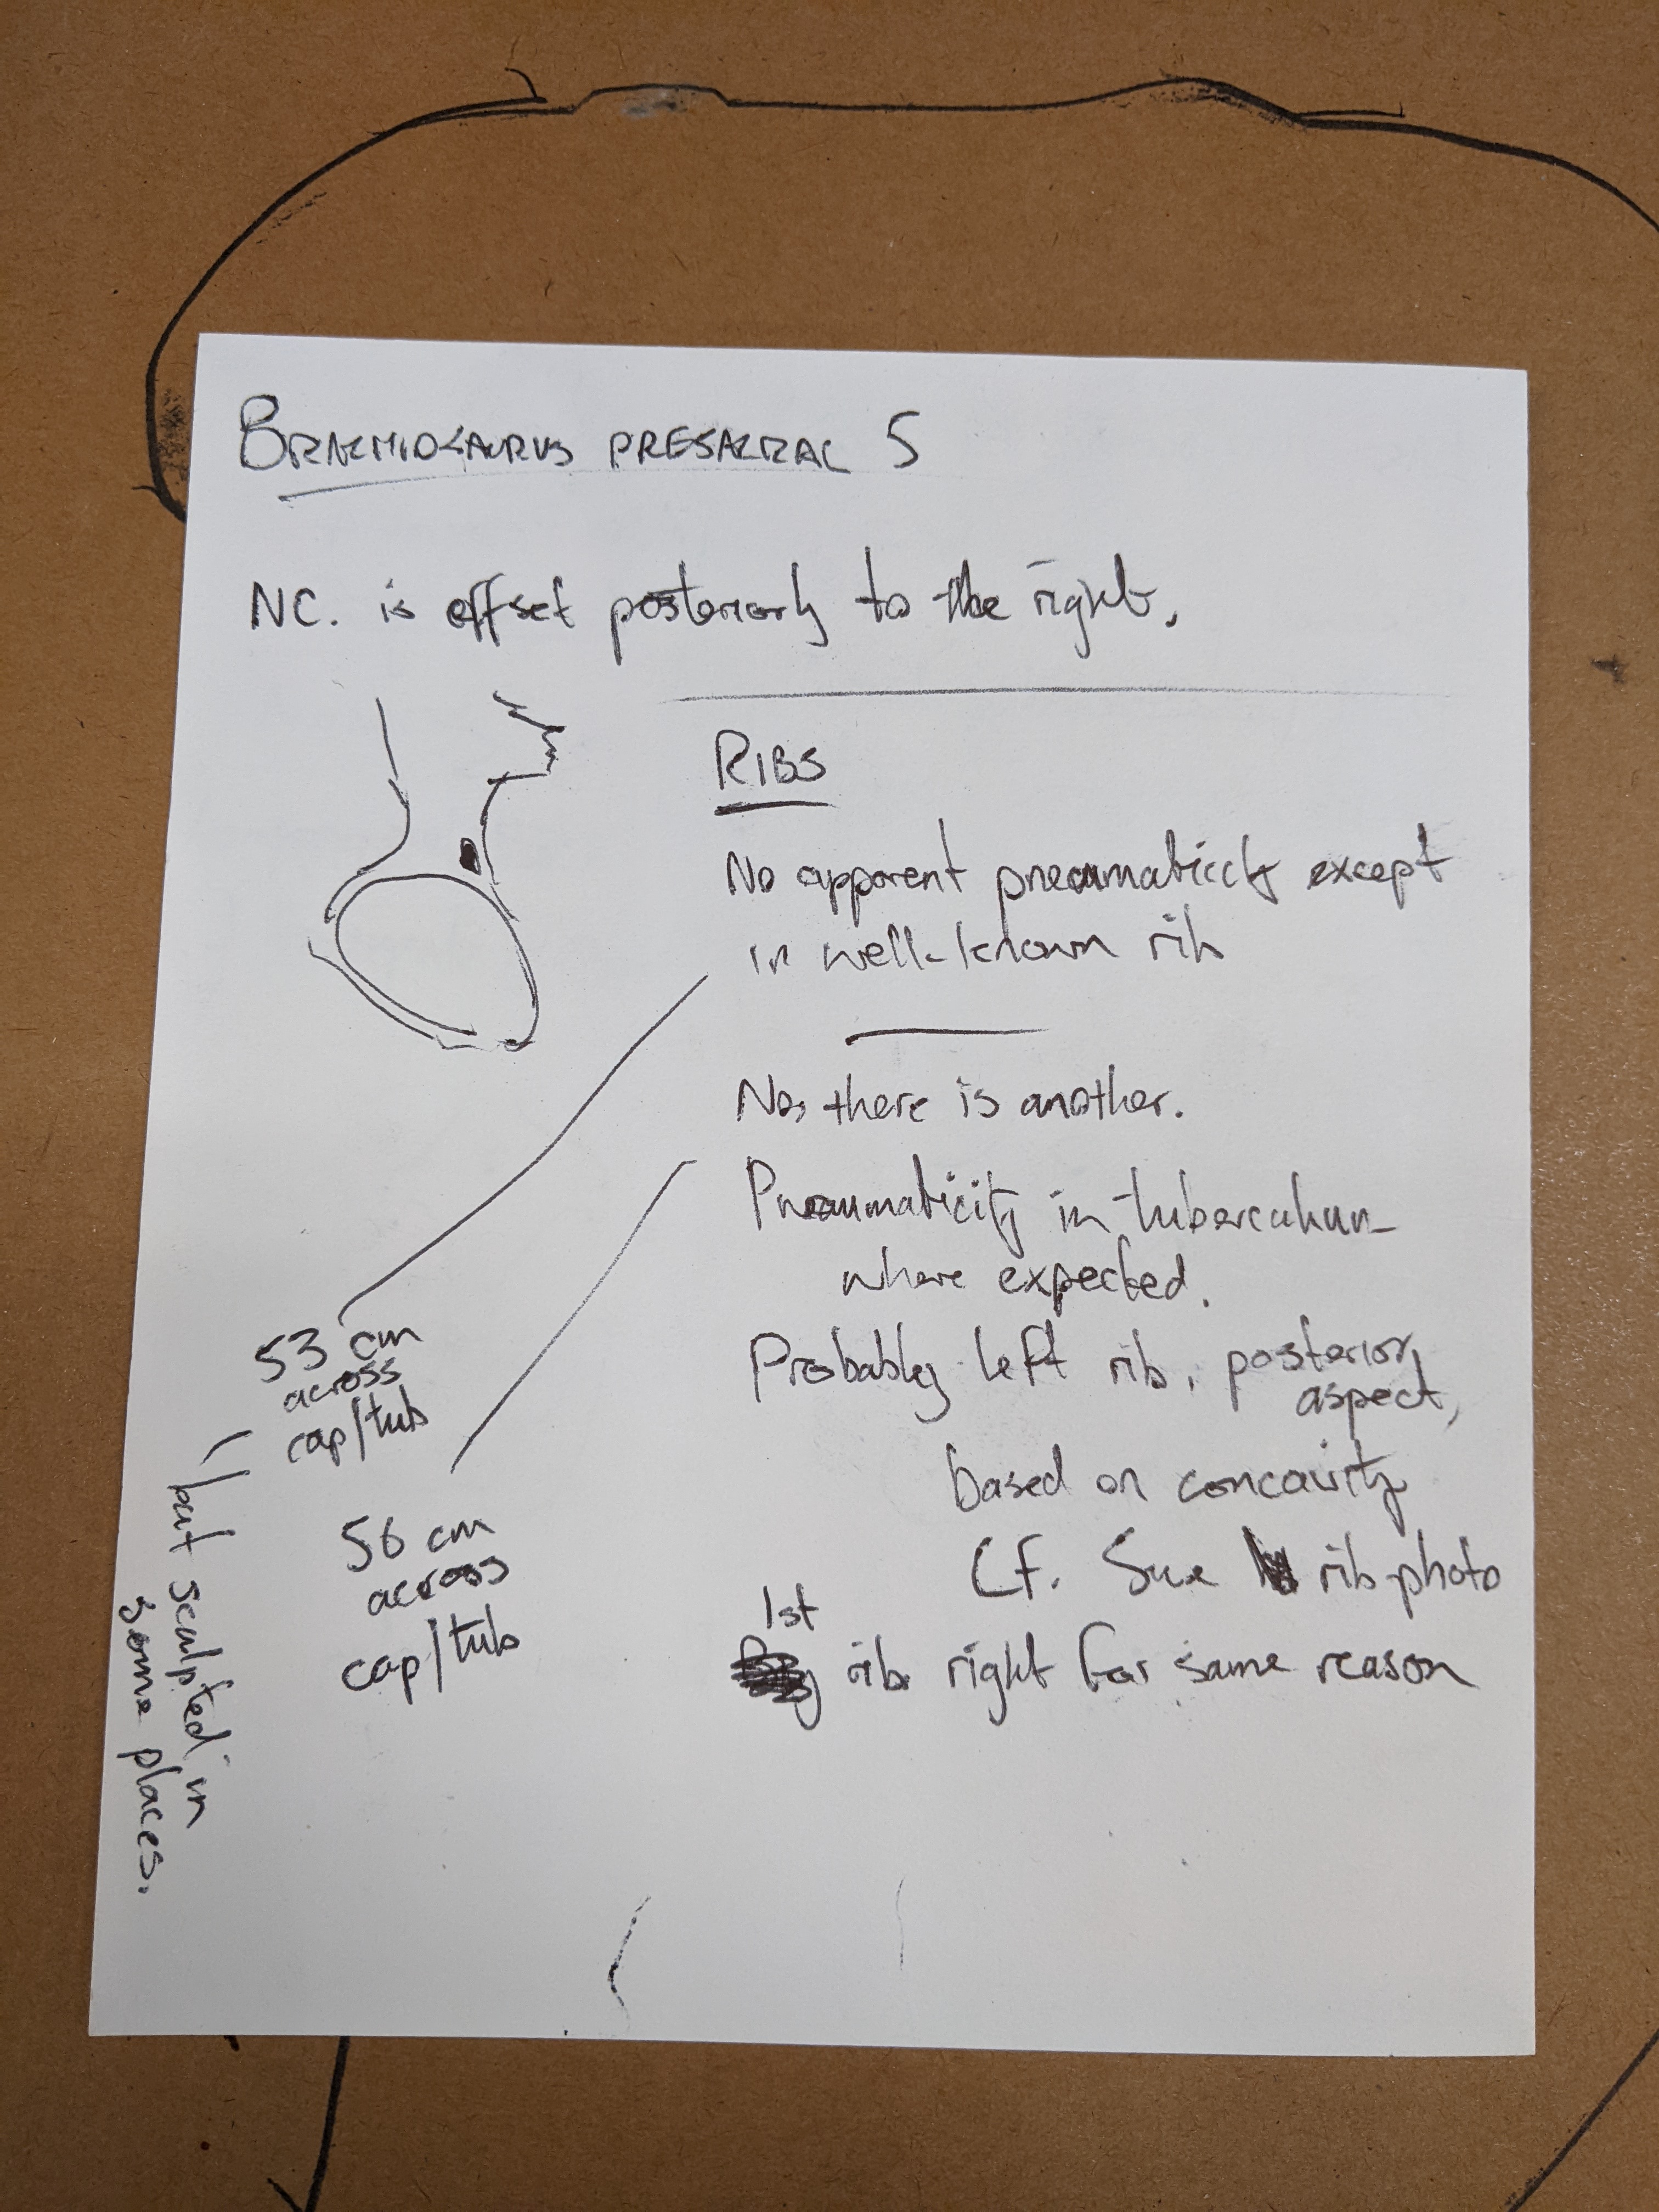 BRACHIOSAURUS PRESACRAL 5
NC. is offset posteriorly to the right.
RIBS
No apparent pneumaticity except
in well-known rib
No, there is another.
Pneumaticity in tuberculum
where expected.
Probably left rib, posterior
aspect,
based on concavity
Cf. Sue rib photo
1st
rib right for same reason
53 cm
across
cap/tub
but sculpted in
some places.
56 cm
across
cap/tub